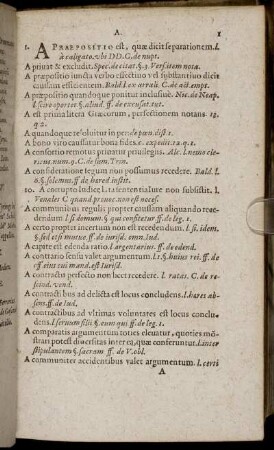 A. 1
1. A PRAEPOSITIO est, quæ dicit separationem. l.
à caligato. vbi DD. C. de nupt.
A priuat & excludit. Spec. de citat. §. 5. Vers. item nota.
A præpositio iuncta verbo effectiuo vel substantiuo dicit
causam efficientem. Bald. l. ex
A præpositio quandoque ponitur inclusiuè. Nic. de Neap.
l. scire oportet §. aliud. ff. de excusat. tut.
A est prima litera Græcorum, perfectionem notans. 12.
q. 2.
A quandoque resoluitur in pro de pœn. dist. 1.
A bono viro causatur bonus index. c. expedit. 12. q. 1.
A consortio remotus priuatur priuilegiis.
A consideratione legum non possumus recedere. Bald. l.
§. solemus. ff. de hered. instit.
10. A corrupto Iudice Lata sententia latè non subsistit. l.
Venales C. quand. prouoc. non est neces.
A communibus regulis propter causam aliquando recedendum
A certo propter incertum non est recedendum. l. si. idem.
§. sed etsi mutuo. ff. de iurisd. omn. Iud.
A capite est edenda ratio. l. argentarius. ff. de edend.
A contrario sensu valet argumentum. l. 1. §. huius rei. ff. de
eff. eius cui mand. est Iurisd.
A contractis perfecto non licet recedere. l. ratas. C. de rescind.
vend.
A contractibus ad delicta est locus concludens. l. hares absens.
ff. de Iud.
A contractibus ad vltimas voluntates est locus concludens.
l. seruum filii §. eum qui. ff. de leg. 1.
A contrariis argumentum toties eleuatur, quoties monstrari
potest diuersitas inter ea, quæ conferuntur. l. inter
stipulantem §. sacram ff. de V. obl.
A communiter accidentibus valet argumentum. l. certi
A